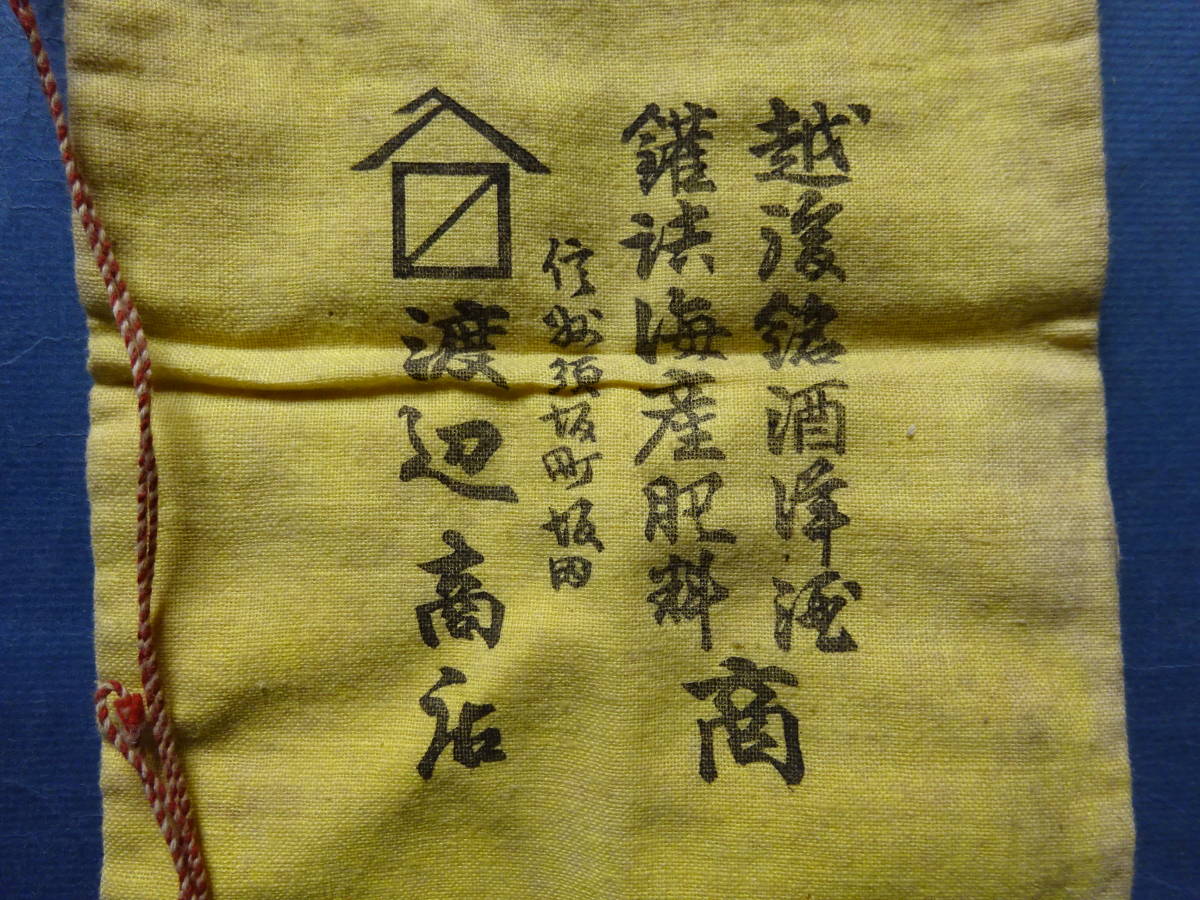 越後銘酒洋酒
鑵詰海産肥料
商
信州須坂町坂田
渡辺商店